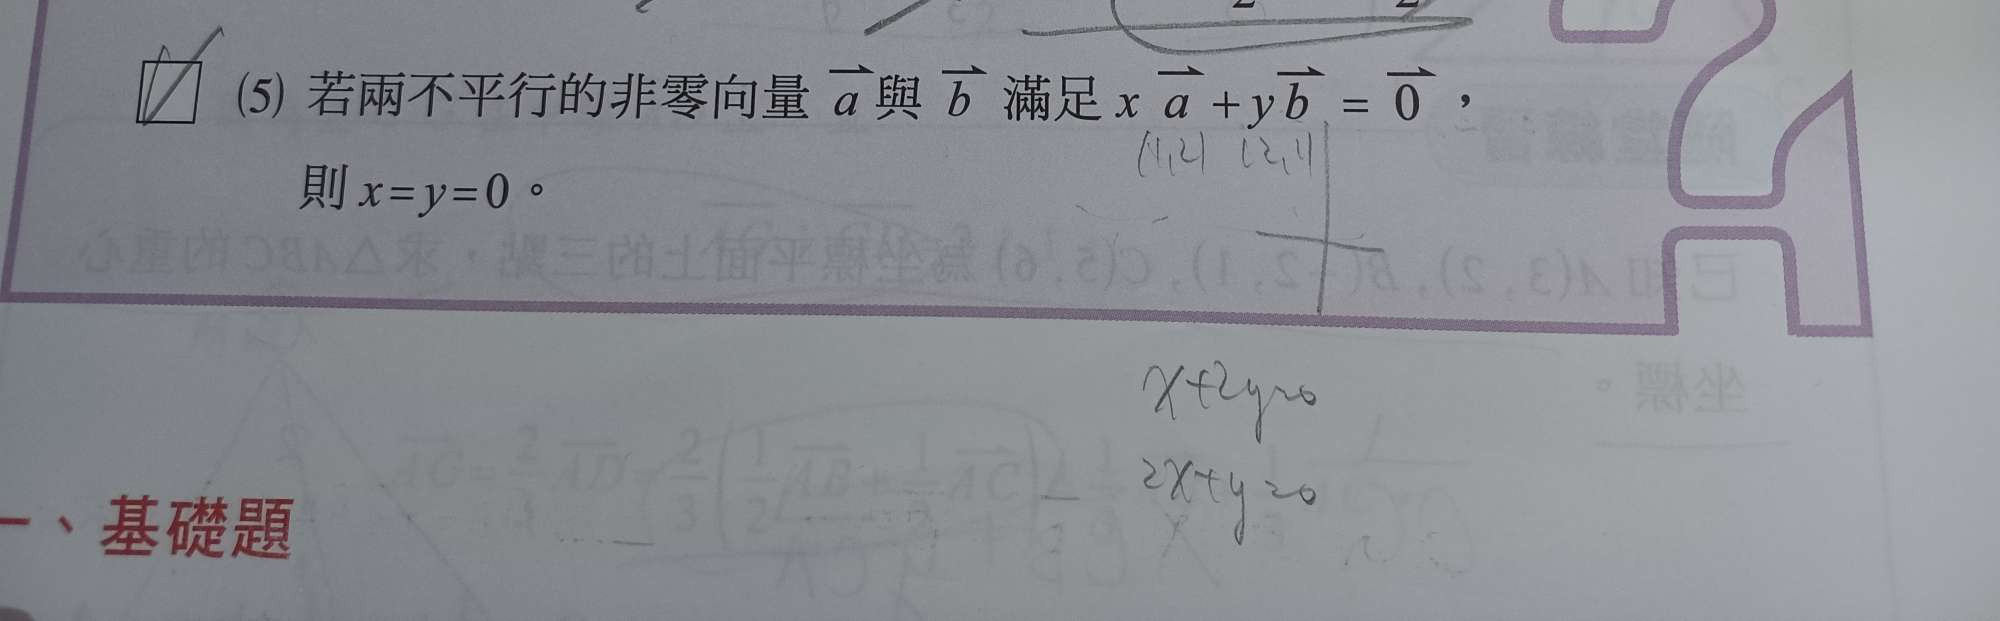 (5) 若兩不平行的非零向量 a⃗ 與 b⃗ 滿足 x a⃗ + y b⃗ = 0⃗，
(1,2) (2,1)
則 x=y=0。
x+2y=0
2x+y=0
一、基礎題